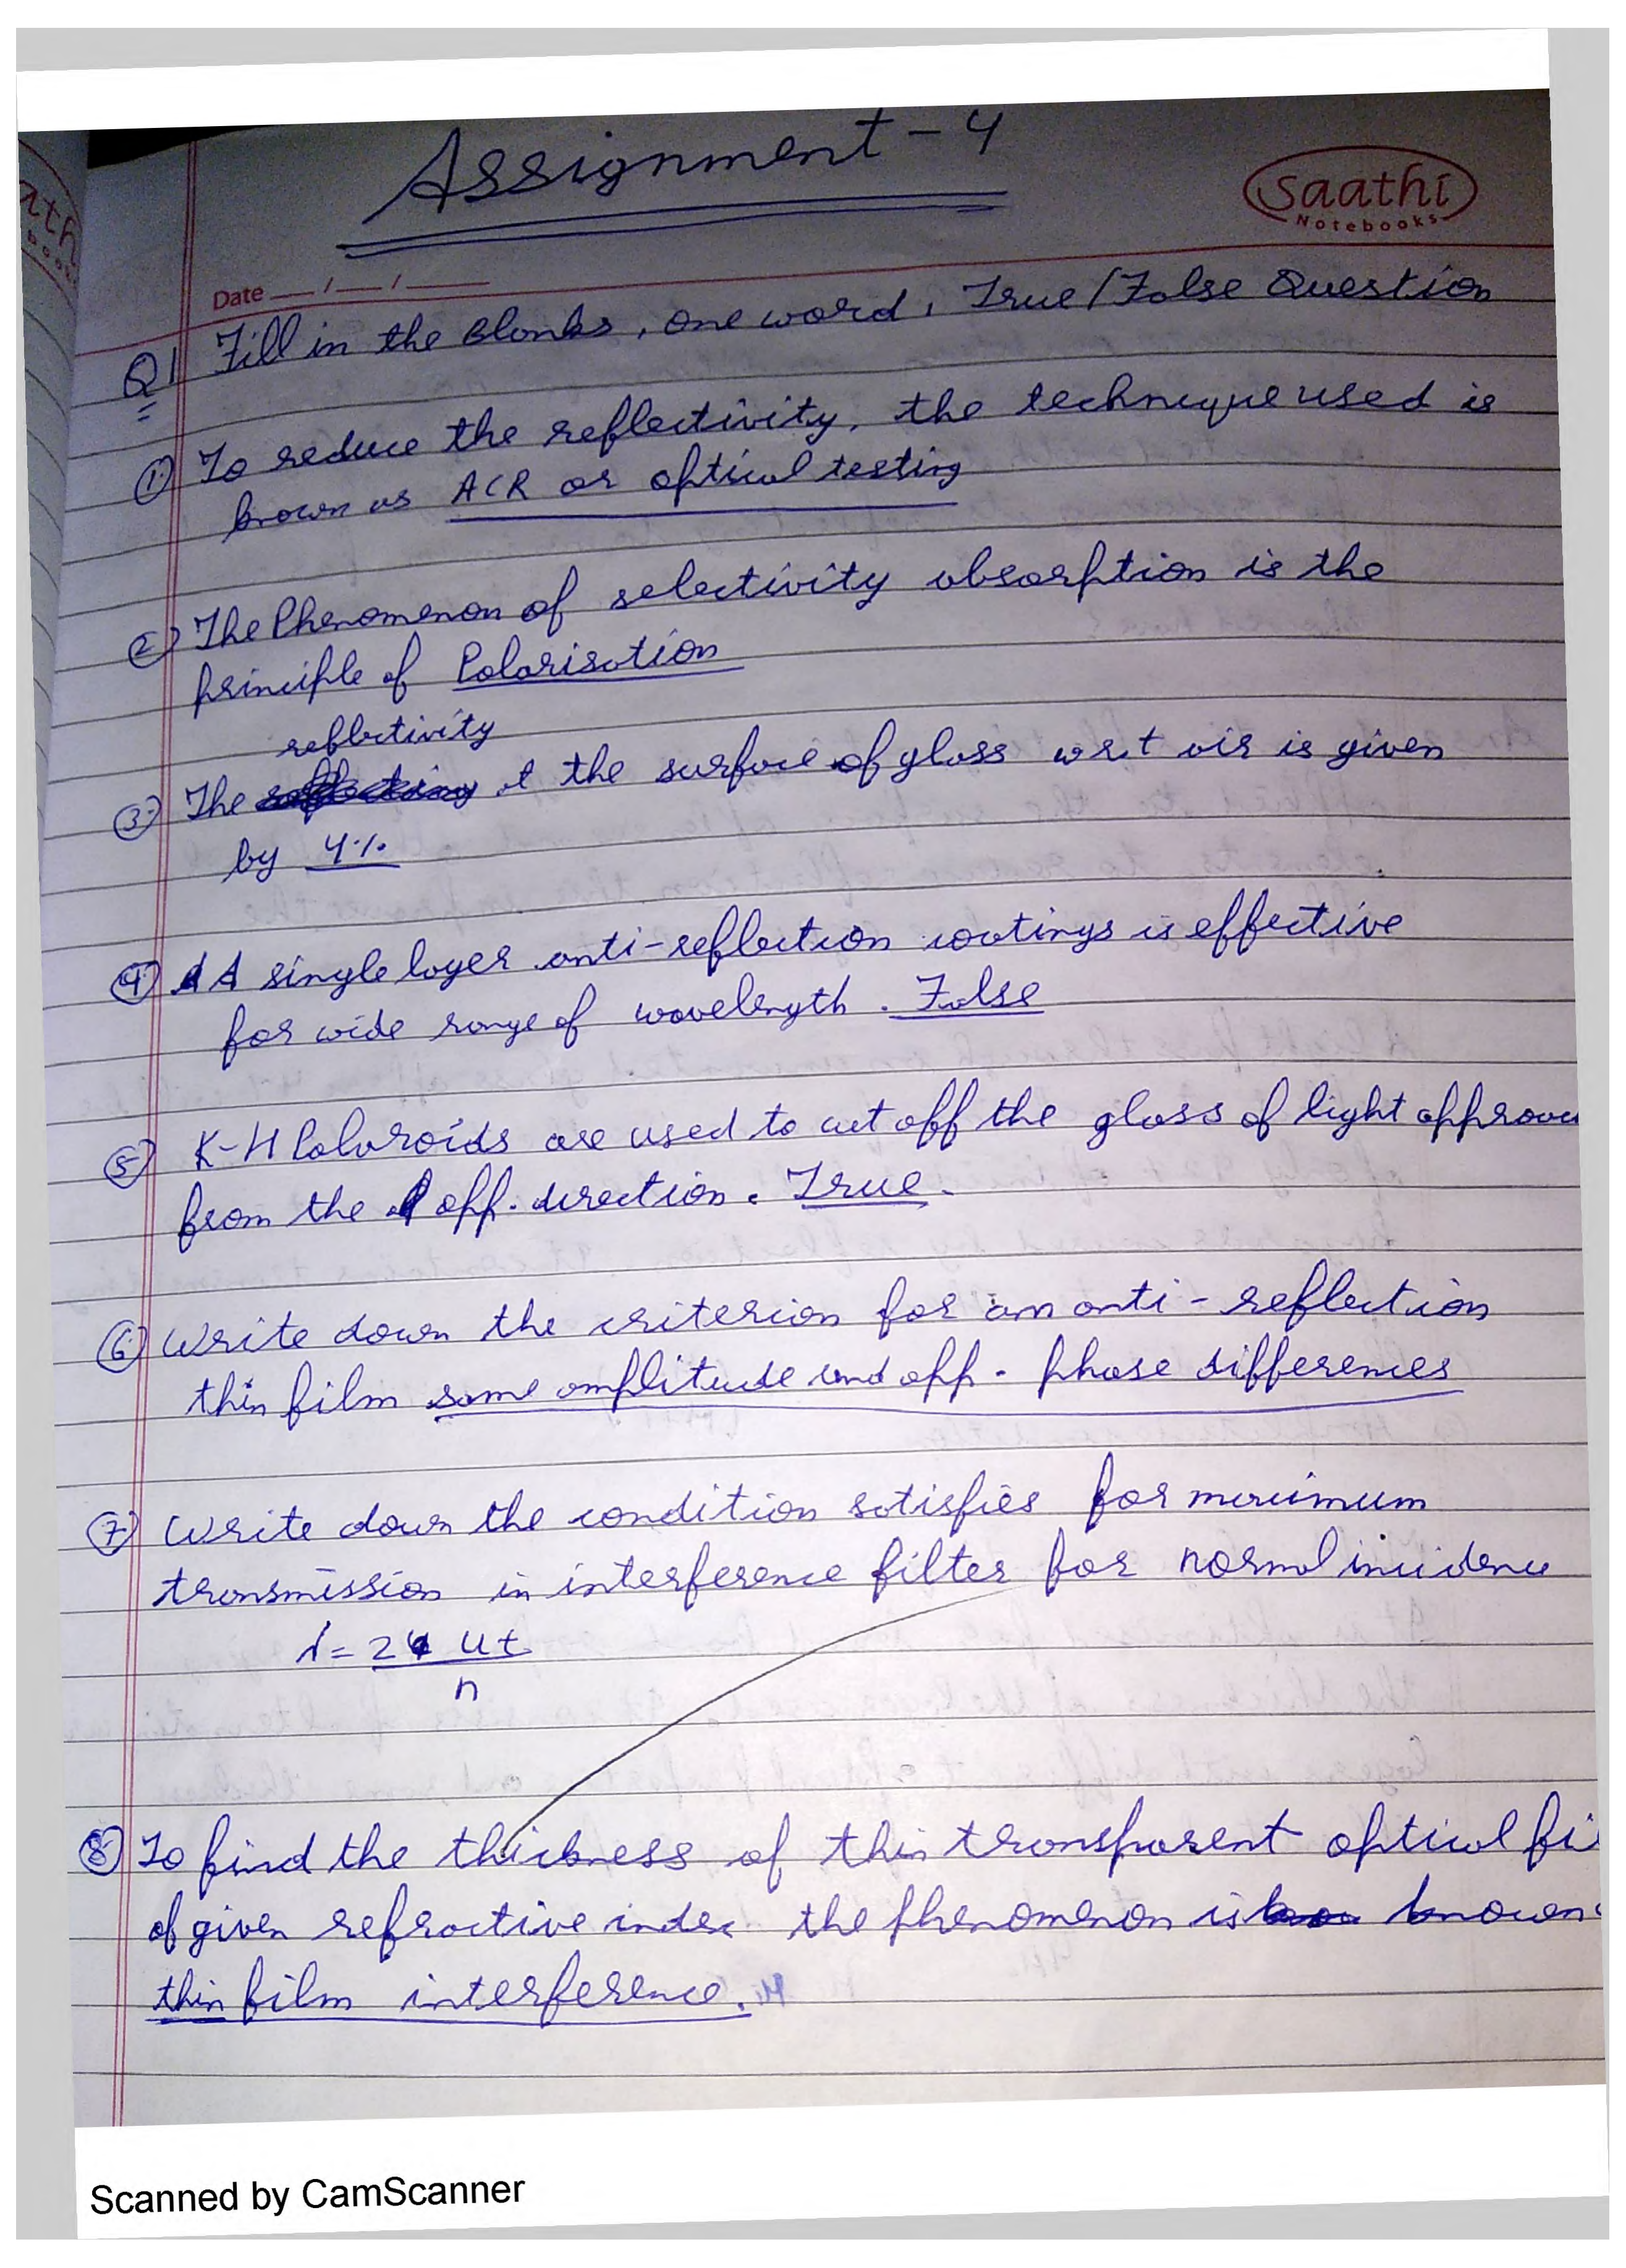 Assignment - 4
Saathi
Notebooks
Date __/__/____
Q1 Fill in the Blanks, one word, True/False Question
1) To reduce the reflectivity, the technique used is
known as ACR or optical testing
2) The Phenomenon of selectivity absorption is the
principle of Polarisation
reflectivity
3) The at the surface of glass w.r.t air is given
by 4%
4) A single layer anti-reflection coatings is effective
for wide range of wavelength. False
5) K-H Polaroids are used to cut off the glass of light
from the opp. direction. True.
6) Write down the criterion for an anti-reflection
thin film same amplitude and opp. phase differences
7) Write down the condition satisfies for
transmission in interference filter for normal incidence
λ = 2 ut
n
8) To find the thickness of thin transparent optical fi
of given refractive index the phenomenon is known
thin film interference.
Scanned by CamScanner